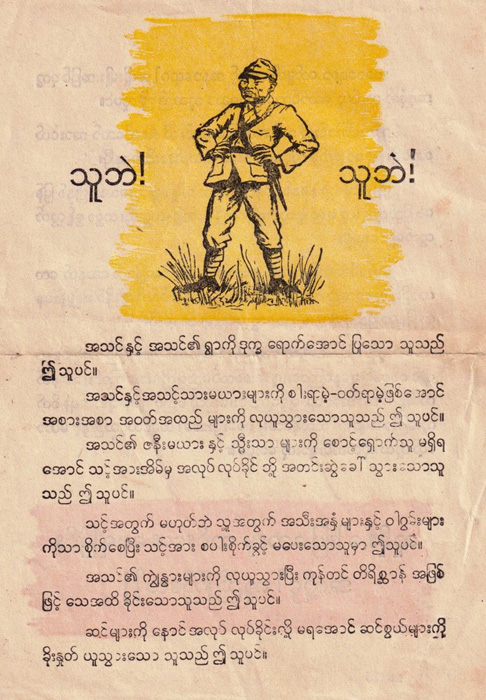 သူဘဲ! သူဘဲ!
အသင်နှင့် အသင်၏ ရွာကို ဒုက္ခ ရောက်အောင် ပြုသော သူသည်
ဤ သူပင်။
အသင်နှင့်အသင့်သားမယားများကို စါးရာမဲ့-ဝတ်ရာမဲ့ဖြစ်အောင်
အစားအစာ အဝတ်အထည် များကို လုယူသွားသောသူသည် ဤ သူပင်။
အသင်၏ ဇနီးမယား နှင့် သ္မီးသာ များကို စောင့်ရှောက်သူ မရှိရ
အောင် သင့်အားအိမ်မှ အလုပ် လုပ်ခိုင် ဘို့ အတင်းဆွဲခေါ် သွားသောသူ
သည် ဤ သူပင်။
သင့်အတွက် မဟုတ်ဘဲ သူ့အတွက် အသီးအနှံ များနှင့် ဝါဂွမ်းများ
ကိုသာ စိုက်စေပြီး သင့်အား စပါးစိုက်ခွင့် မပေးသောသူမှာ ဤသူပင်။
အသင်၏ ကျွဲနွားများကို လုယူသွားပြီး ကုန်တင် တိရိစ္ဆာန် အဖြစ်
ဖြင့် သေအထိ ခိုင်းသောသူသည် ဤ သူပင်။
ဆင်များကို နောင် အလုပ် လုပ်ခိုင်းလို့ မရအောင် ဆင်စွယ်များကို
ခိုးနှုတ် ယူသွားသော သူသည် ဤ သူပင်။